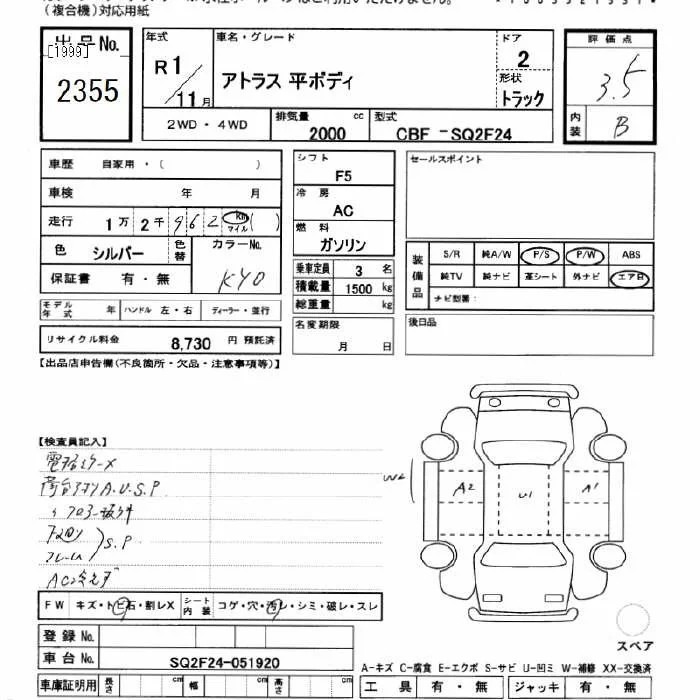 (複合機)対応用紙
出品No.
[1999]
2355
年式
R1/11月
車名・グレード
アトラス 平ボディ
ドア
2
形状
トラック
評価点
3.5
内装
B
2WD・4WD
排気量
2000 cc
型式
CBF-SQ2F24
車歴 自家用・( )
車検 年 月
走行 1万2千962 km マイル ( )
色 シルバー 色替 カラーNo. KY0
保証書 有・無
モデル年式 年 ハンドル 左・右 ディーラー・並行
リサイクル料金 8,730 円 預託済
シフト
F5
冷房
AC
燃料
ガソリン
乗車定員 3 名
積載量 1500 kg
総重量 kg
名変期限
月 日
セールスポイント
装備品
S/R 純A/W P/S P/W ABS
純TV 純ナビ 革シート 外ナビ エアB
ナビ型番:
後日品
【出品店申告欄(不良箇所・欠品・注意事項等)】
【検査員記入】
A.U.S.P
S.P
フレーム
W2
A2
U1
A1
FW キズ・トビ石・割レX シート内装 コゲ・穴・汚レ・シミ・破レ・スレ
登録No.
車台No. SQ2F24-051920
車庫証明用 長さ cm 幅 cm 高さ cm
スペア
A-キズ C-腐食 E-エクボ S-サビ U-凹ミ W-補修 XX-交換済
工具 有・無 ジャッキ 有・無